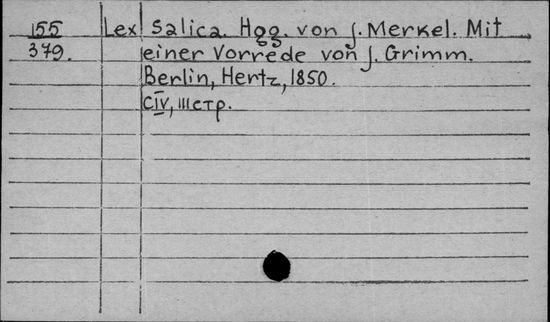 155 Lex Salica. Hgg. von J. Merkel. Mit
379. einer Vorrede von J. Grimm.
Berlin, Hertz, 1850.
CIV, III стр.